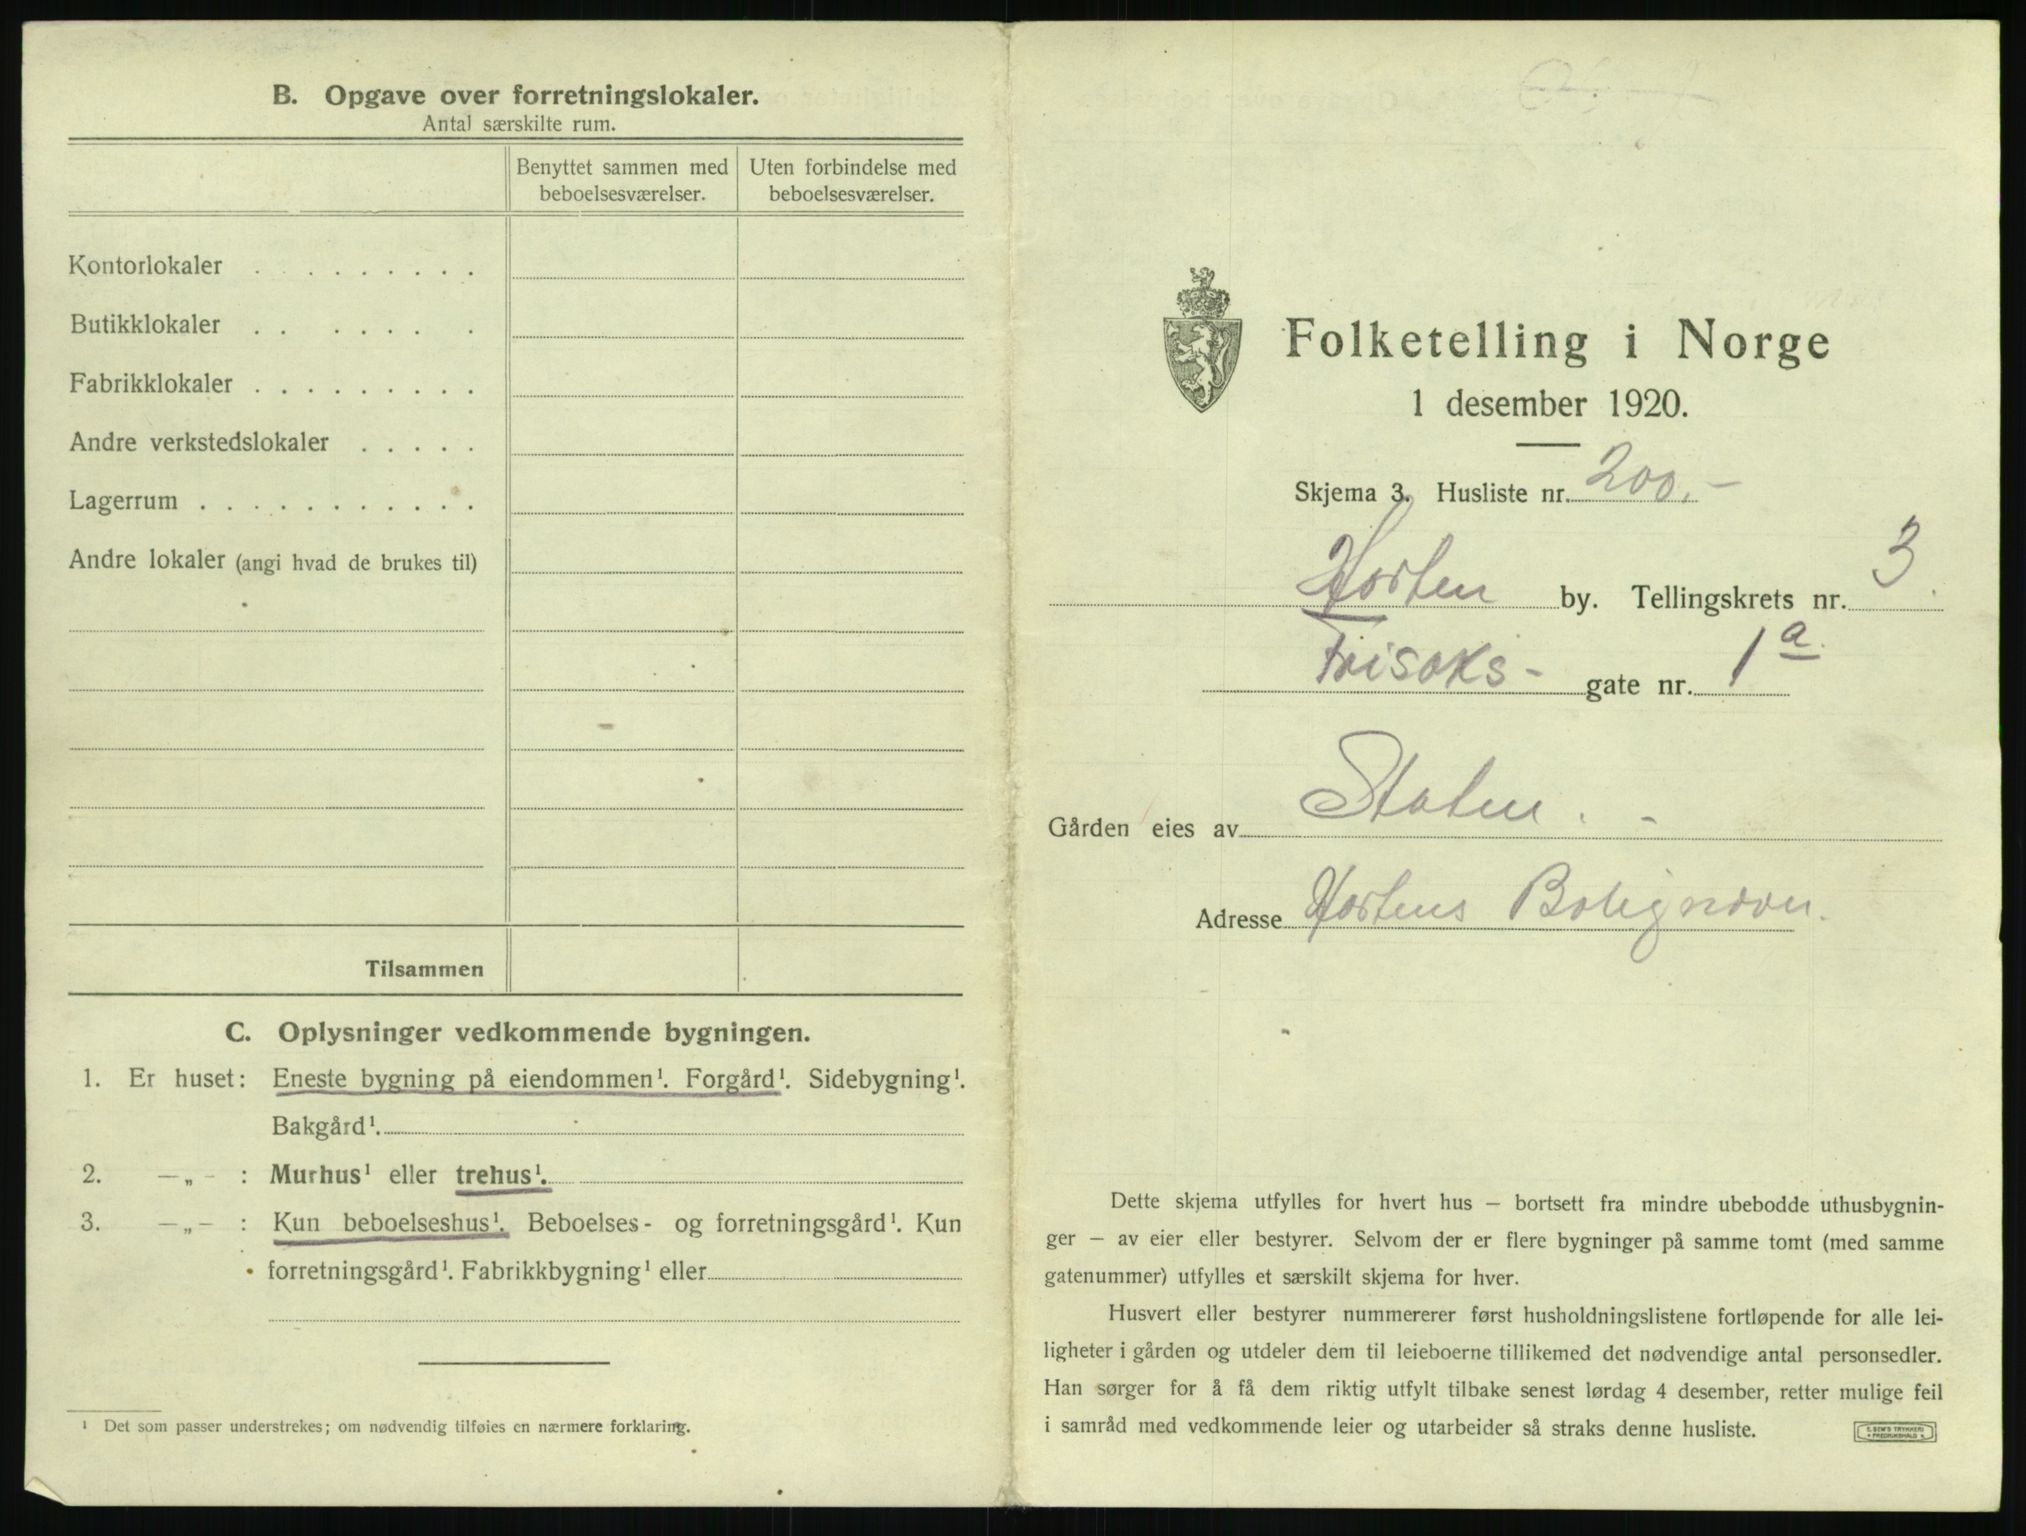 B. Opgave over forretningslokaler.
Antal særskilte rum.
Benyttet sammen med beboelsesværelser.
Uten forbindelse med beboelsesværelser.
Kontorlokaler . . . . . . . . .
Butikklokaler . . . . . . .
Fabrikklokaler . . . . . . . . .
Andre verkstedslokaler . . . . .
Lagerrum . . . . . . . . . . .
Andre lokaler (angi hvad de brukes til)
Tilsammen
C. Oplysninger vedkommende bygningen.
1. Er huset: Eneste bygning på eiendommen¹. Forgård¹. Sidebygning¹.
Bakgård¹.
2. —„— : Murhus¹ eller trehus¹.
3. —„— : Kun beboelseshus¹. Beboelses- og forretningsgård¹. Kun
forretningsgård¹. Fabrikkbygning¹ eller
¹ Det som passer understrekes; om nødvendig tilføies en nærmere forklaring.
Folketelling i Norge
1 desember 1920.
Skjema 3. Husliste nr. 200.-
Horten by. Tellingskrets nr. 3
Frisaks- gate nr. 1a
Gården eies av Staten. -
Adresse Hortens Bolignævn.
Dette skjema utfylles for hvert hus — bortsett fra mindre ubebodde uthusbygnin-
ger — av eier eller bestyrer. Selvom der er flere bygninger på samme tomt (med samme
gatenummer) utfylles et særskilt skjema for hver.
Husvert eller bestyrer nummererer først husholdningslistene fortløpende for alle lei-
ligheter i gården og utdeler dem til leieboerne tillikemed det nødvendige antal personsedler.
Han sørger for å få dem riktig utfylt tilbake senest lørdag 4 desember, retter mulige feil
i samråd med vedkommende leier og utarbeider så straks denne husliste.